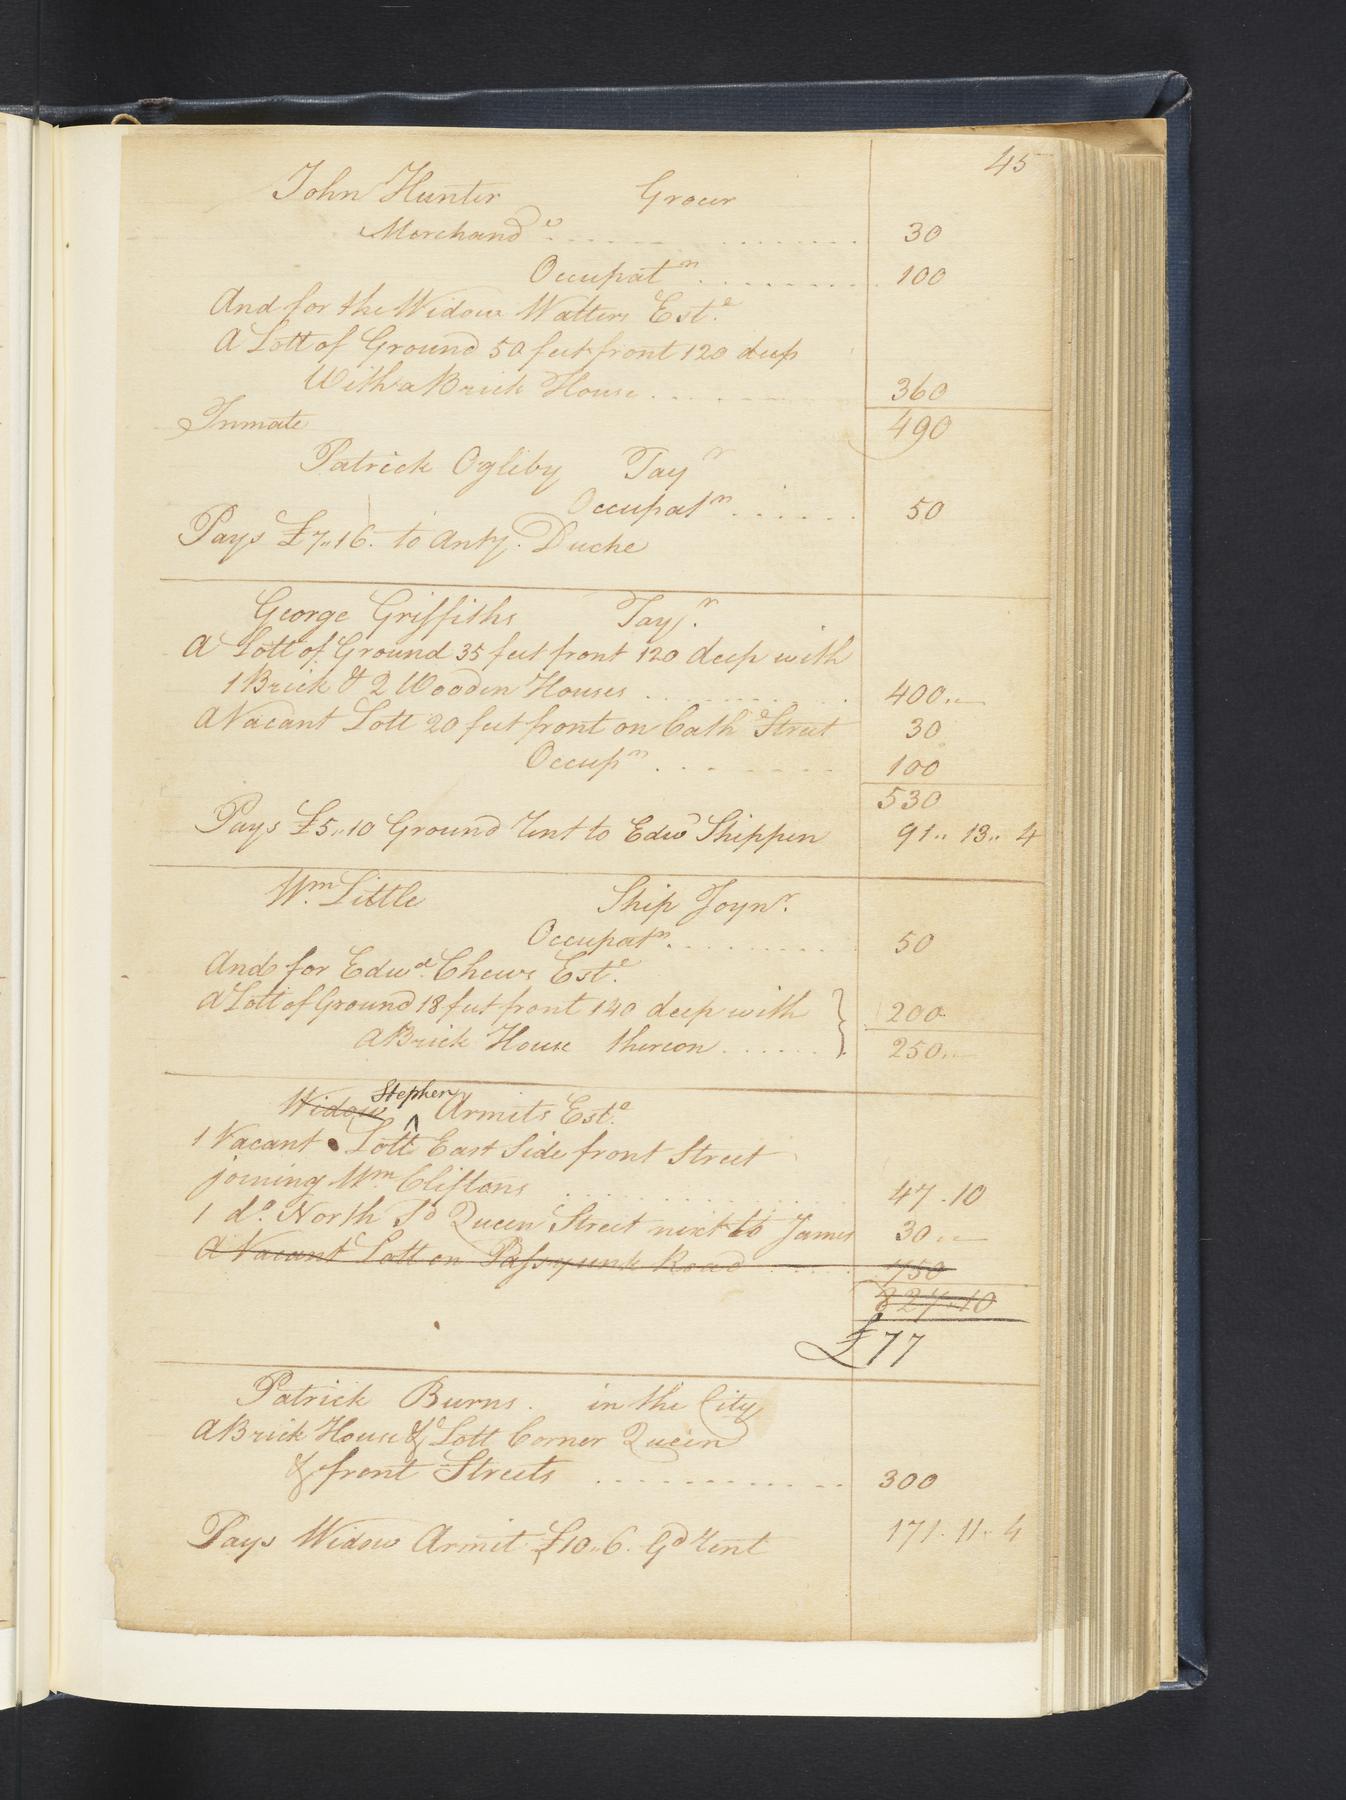 45
John Hunter Grocer
Merchand^e 30
Occupat^n 100
And for the Widow Walters Est^e
A Lott of Ground 50 feet front 120 deep
With a Brick House 360
490
Inmate
Patrick Ogliby Tay^r
Occupat^n 50
Pays £7..16. to Anty. Duche
George Griffiths Tay^r.
A Lott of Ground 35 feet front 120 deep with
1 Brick & 2 Wooden Houses 400..
A Vacant Lott 20 feet front on Cath^e Street 30
Occup^n 100
530
Pays £5..10 Ground Rent to Edw^d Shippen 91..13..4
W^m. Little Ship Joyn^r.
Occupat^n 50
And for Edw^d. Chews Est^e.
A Lott of Ground 18 feet front 140 deep with 200
A Brick House thereon 250..
Widow Stephen Armits Est^e
1 Vacant Lott East Side front Street
joining W^m Cliftons 47.10
1 d^o. North S^d Queen Street next to James 30..
A Vacant Lott on Passyunk Road 750
827..10
£77
Patrick Burns. in the City
A Brick House & Lott Corner Queen
& front Streets 300
Pays Widow Armit £10..6. G^d Rent 171.11..4